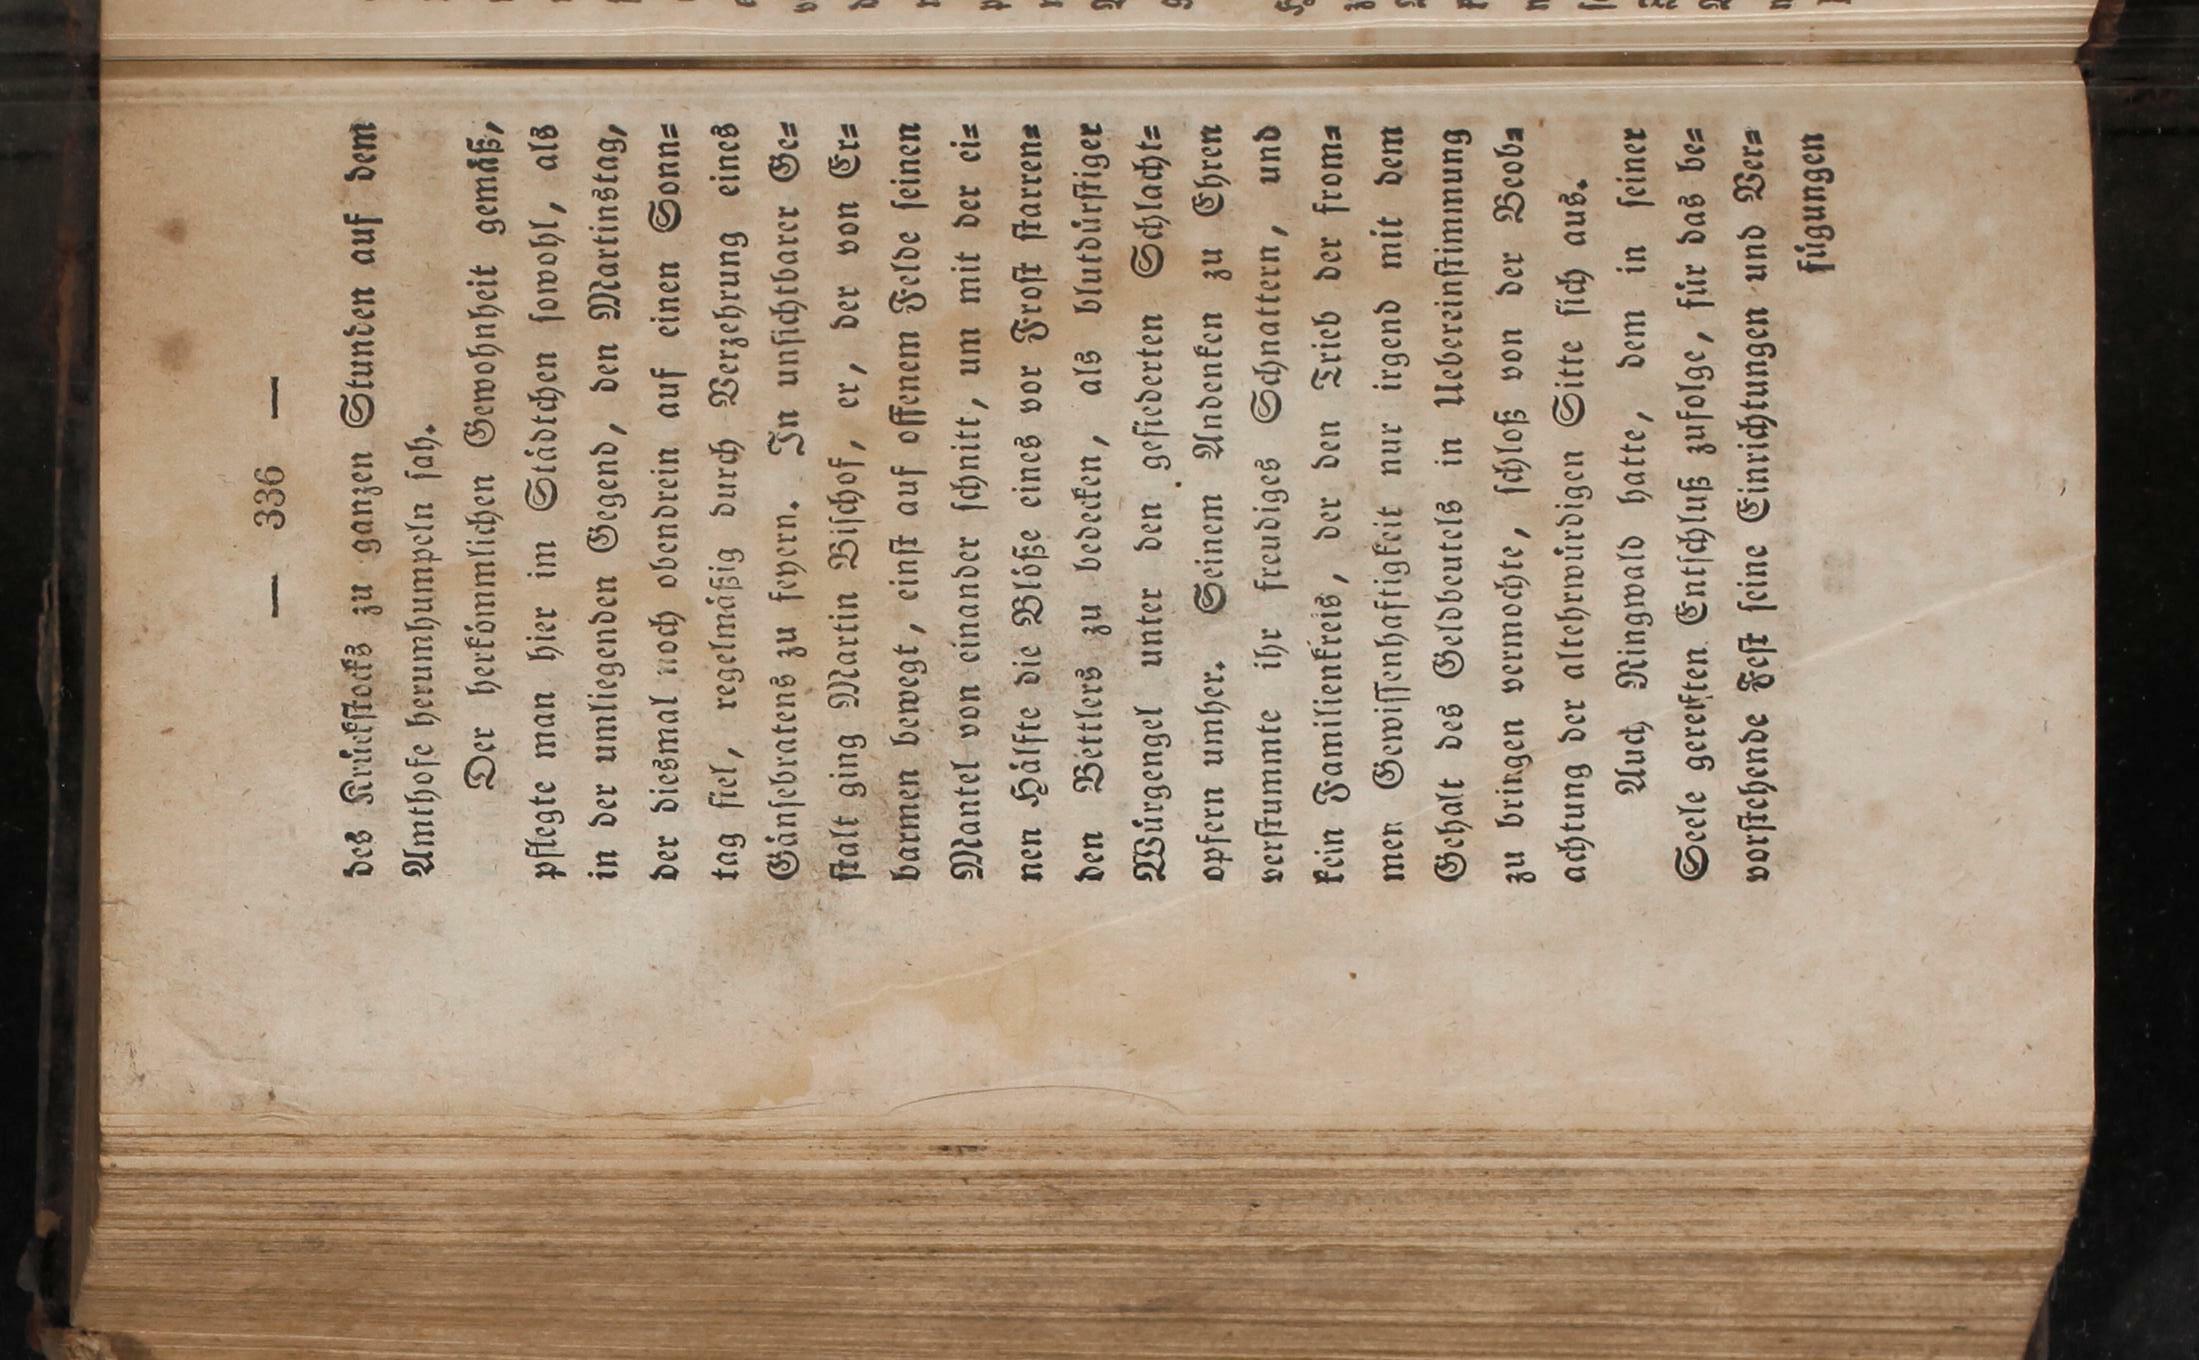 — 336 —
des Krückſtocks zu ganzen Stunden auf dem
Amthofe herumhumpeln ſah.
Der herkömmlichen Gewohnheit gemäß,
pflegte man hier im Städtchen ſowohl, als
in der umliegenden Gegend, den Martinstag,
der diesmal noch obendrein auf einen Sonn=
tag fiel, regelmäßig durch Verzehrung eines
Gänſebratens zu feyern. In unſichtbarer Ge=
ſtalt ging Martin Biſchof, er, der von Er=
barmen bewegt, einſt auf offenem Felde ſeinen
Mantel von einander ſchnitt, um mit der ei=
nen Hälfte die Blöße eines vor Froſt ſtarren=
den Bettlers zu bedecken, als blutdürſtiger
Würgengel unter den gefiederten Schlacht=
opfern umher. Seinem Andenken zu Ehren
verſtummte ihr freudiges Schnattern, und
kein Familienkreis, der den Trieb der from=
men Gewiſſenhaftigkeit nur irgend mit dem
Gehalt des Geldbeutels in Uebereinſtimmung
zu bringen vermochte, ſchloß von der Beob=
achtung der altehrwürdigen Sitte ſich aus.
Auch Ringwald hatte, dem in ſeiner
Seele gereiften Entſchluß zufolge, für das be=
vorſtehende Feſt ſeine Einrichtungen und Ver=
fügungen